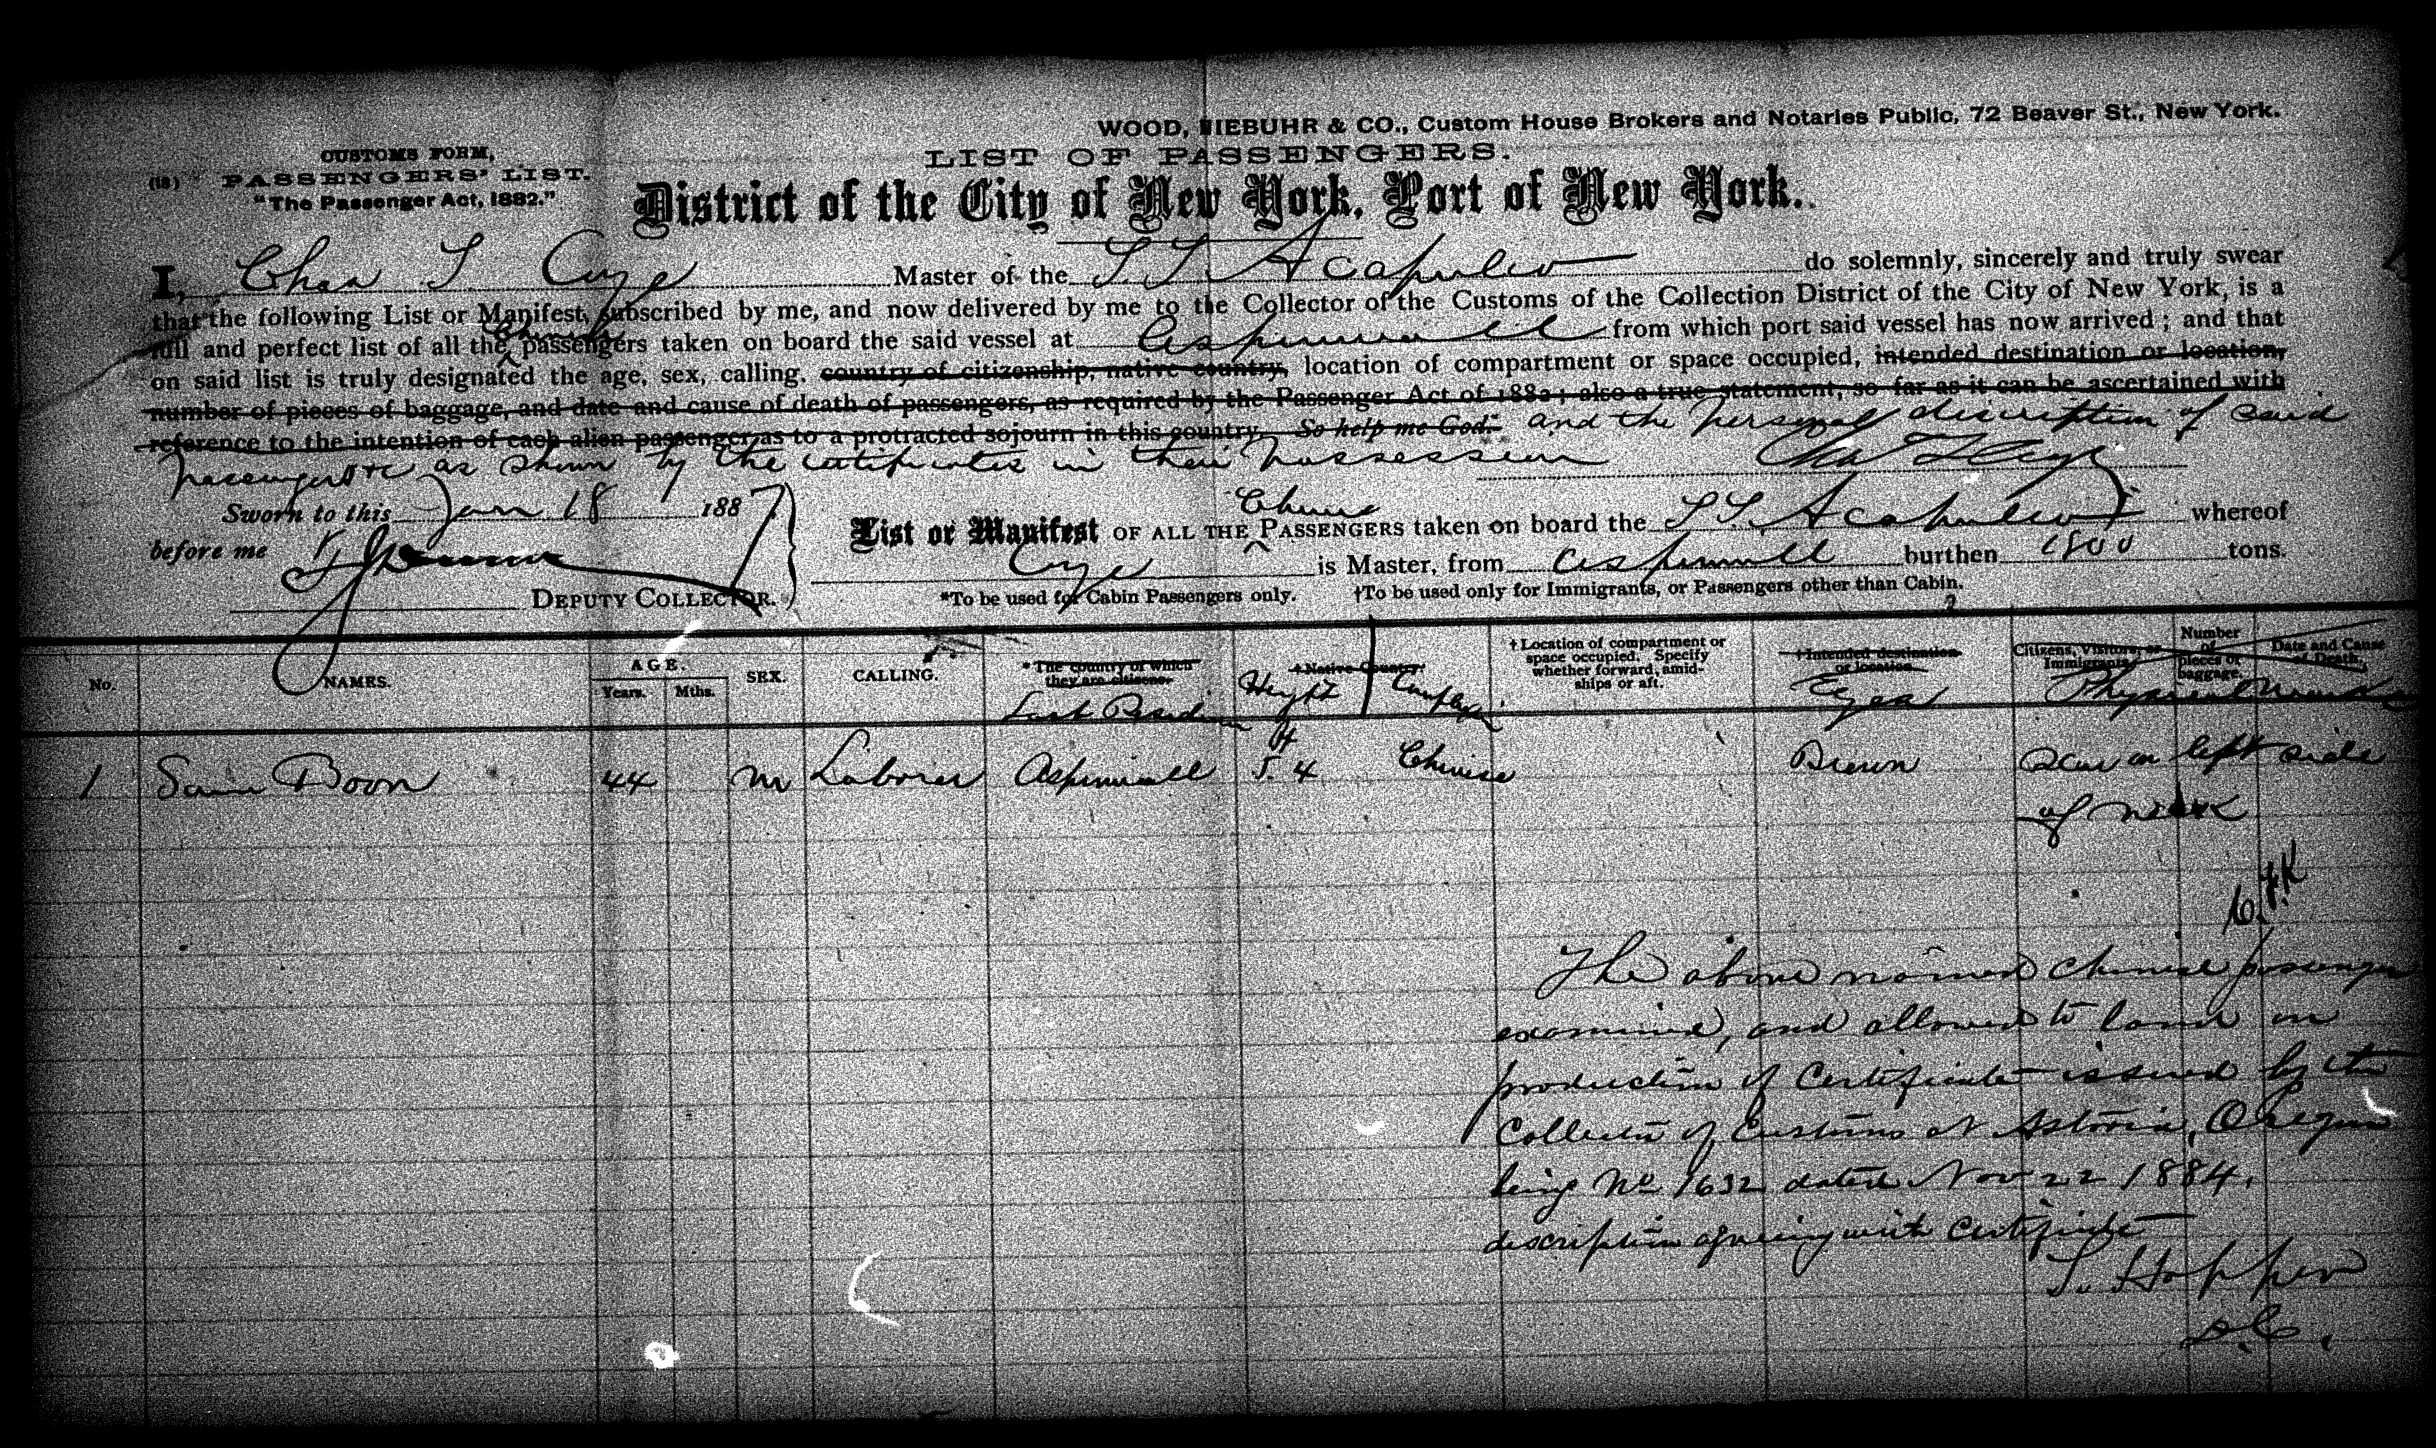 WOOD, NIEBUHR & CO., Custom House Brokers and Notaries Public, 72 Beaver St., New York.
CUSTOMS FORM,
(18) PASSENGERS' LIST.
"The Passenger Act, 1882."
LIST OF PASSENGERS.
District of the City of New York, Port of New York.
I, Chas Master of the S.S. Acapulco do solemnly, sincerely and truly swear
that the following List or Manifest, subscribed by me, and now delivered by me to the Collector of the Customs of the Collection District of the City of New York, is a
full and perfect list of all the Chinese passengers taken on board the said vessel at Aspinwall from which port said vessel has now arrived; and that
on said list is truly designated the age, sex, calling, country of citizenship, native country, location of compartment or space occupied, intended destination or location,
number of pieces of baggage, and date and cause of death of passengers, as required by the Passenger Act of 1882; also a true statement, so far as it can be ascertained with
reference to the intention of each alien passenger as to a protracted sojourn in this country. So help me God. and the personal description of said
passengers as shown by the certificates in their possession
Sworn to this Jan 18 1887
before me
DEPUTY COLLECTOR.
List or Manifest OF ALL THE Chinese PASSENGERS taken on board the S.S. Acapulco whereof
is Master, from Aspinwall burthen tons.
*To be used for Cabin Passengers only. †To be used only for Immigrants, or Passengers other than Cabin.
No. NAMES. AGE. Years. Mths. SEX. CALLING. *The country of which they are citizens. Last Residence †Native Country Height Complexion †Location of compartment or space occupied. Specify whether forward, amidships or aft. †Intended destination or location. Eyes Citizens, Visitors, or Immigrants. Number of pieces of baggage. Date and Cause of Death. Physical Marks
1 Sam Boon 44 m Laborer Aspinwall ft 5.4 Chinese Brown Scar on left side
of neck
The above named Chinese passenger
examined, and allowed to land on
production of Certificate issued by the
Collector of Customs at Astoria, Oregon
being No 1632 dated Nov 22 1884.
description agreeing with Certificate
S. Hopper
D.C.